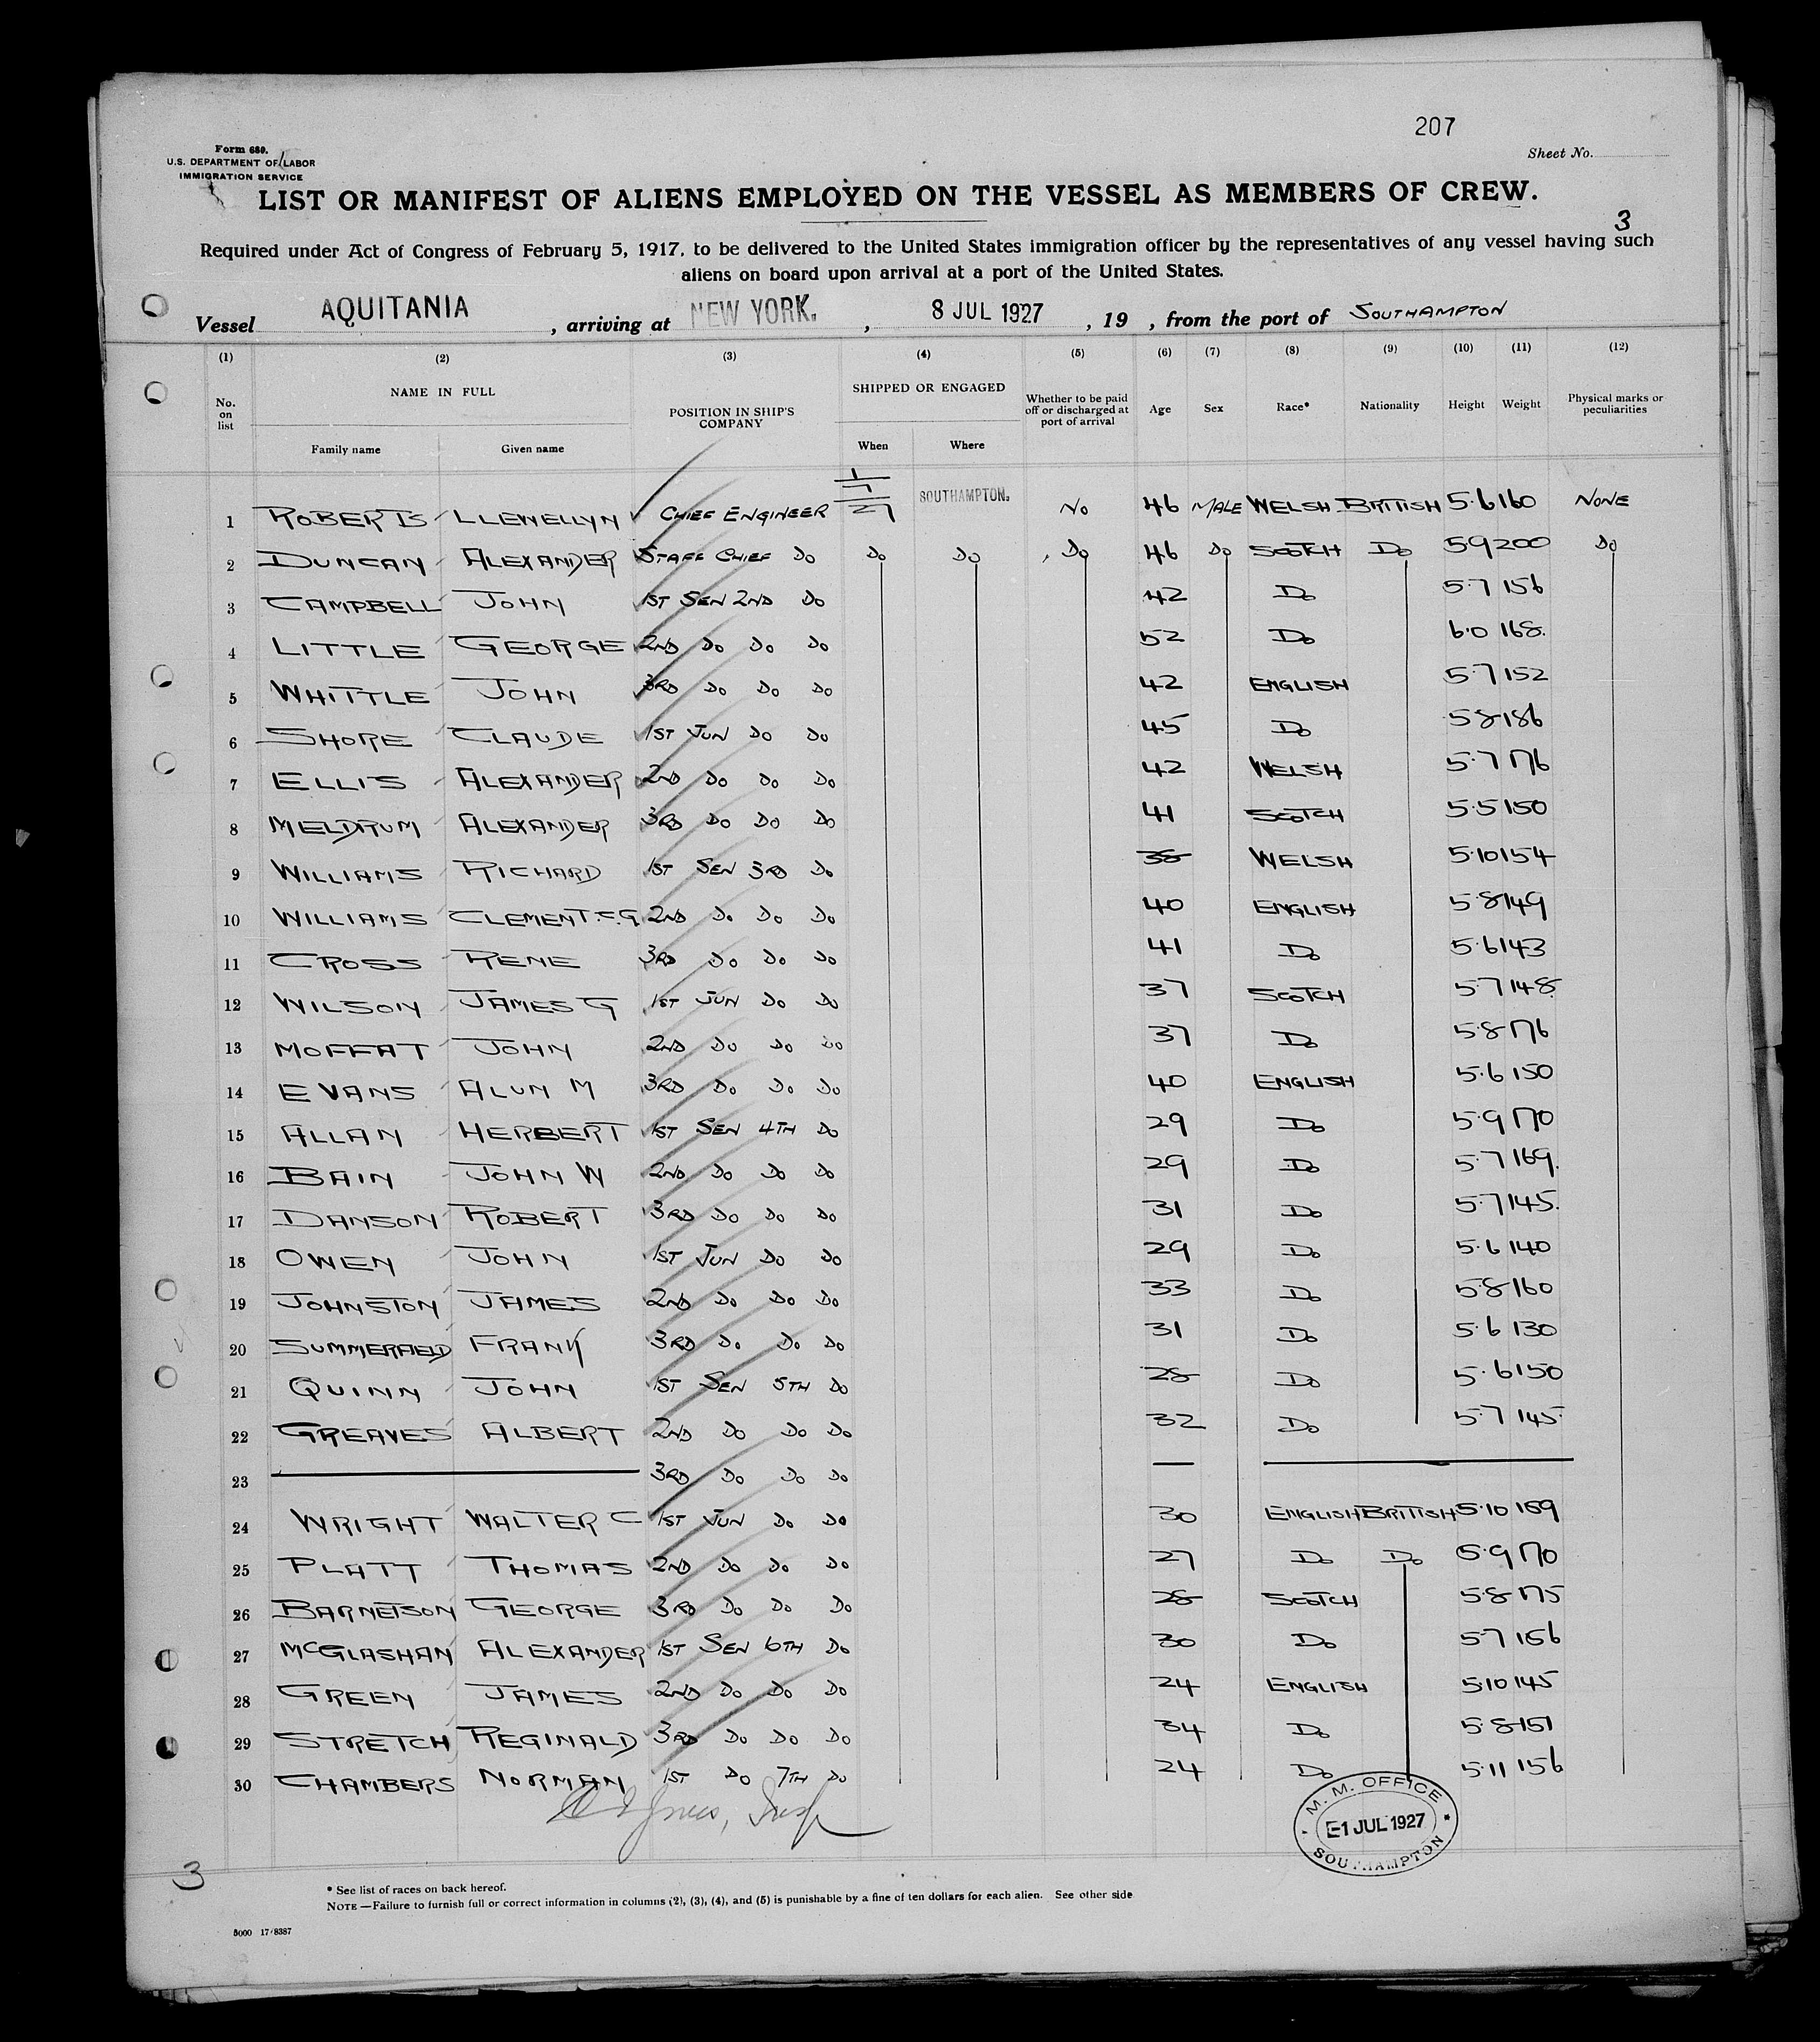 207
Form 680.
U.S. DEPARTMENT OF LABOR
IMMIGRATION SERVICE
Sheet No.
LIST OR MANIFEST OF ALIENS EMPLOYED ON THE VESSEL AS MEMBERS OF CREW.
3
Required under Act of Congress of February 5, 1917, to be delivered to the United States immigration officer by the representatives of any vessel having such
aliens on board upon arrival at a port of the United States.
Vessel AQUITANIA, arriving at NEW YORK., 8 JUL 1927, 19 , from the port of SOUTHAMPTON
(1) (2) (3) (4) (5) (6) (7) (8) (9) (10) (11) (12)
No. on list NAME IN FULL POSITION IN SHIP'S COMPANY SHIPPED OR ENGAGED Whether to be paid off or discharged at port of arrival Age Sex Race* Nationality Height Weight Physical marks or peculiarities
Family name Given name When Where
1 ROBERTS LLEWELLYN CHIEF ENGINEER 1/7/27 SOUTHAMPTON. NO 46 MALE WELSH BRITISH 5.6 160 NONE
2 DUNCAN ALEXANDER STAFF CHIEF DO DO DO DO 46 DO SCOTCH DO 5.9 200 DO
3 CAMPBELL JOHN 1ST SEN 2ND DO 42 DO 5.7 156
4 LITTLE GEORGE 2ND DO DO DO 52 DO 6.0 168.
5 WHITTLE JOHN 3RD DO DO DO 42 ENGLISH 5.7 152
6 SHORE CLAUDE 1ST JUN DO DO 45 DO 5.8 186
7 ELLIS ALEXANDER 2ND DO DO DO 42 WELSH 5.7 176
8 MELDRUM ALEXANDER 3RD DO DO DO 41 SCOTCH 5.5 150
9 WILLIAMS RICHARD 1ST SEN 3RD DO 38 WELSH 5.10 154
10 WILLIAMS CLEMENT.F.G. 2ND DO DO DO 40 ENGLISH 5.8 149
11 CROSS RENE 3RD DO DO DO 41 DO 5.6 143
12 WILSON JAMES G 1ST JUN DO DO 37 SCOTCH 5.7 148.
13 MOFFAT JOHN 2ND DO DO DO 37 DO 5.8 176
14 EVANS ALUN M 3RD DO DO DO 40 ENGLISH 5.6 150
15 ALLAN HERBERT 1ST SEN 4TH DO 29 DO 5.9 170
16 BAIN JOHN W 2ND DO DO DO 29 DO 5.7 169.
17 DANSON ROBERT 3RD DO DO DO 31 DO 5.7 145.
18 OWEN JOHN 1ST JUN DO DO 29 DO 5.6 140
19 JOHNSTON JAMES 2ND DO DO DO 33 DO 5.8 160
20 SUMMERFIELD FRANK 3RD DO DO DO 31 DO 5.6 130
21 QUINN JOHN 1ST SEN 5TH DO 28 DO 5.6 150
22 GREAVES ALBERT 2ND DO DO DO 32 DO 5.7 145.
23 3RD DO DO DO —
24 WRIGHT WALTER C 1ST JUN DO DO 30 ENGLISH BRITISH 5.10 159
25 PLATT THOMAS 2ND DO DO DO 27 DO DO 5.9 170
26 BARNETSON GEORGE 3RD DO DO DO 28 SCOTCH 5.8 175
27 MCGLASHAN ALEXANDER 1ST SEN 6TH DO 30 DO 5.7 156
28 GREEN JAMES 2ND DO DO DO 24 ENGLISH 5.10 145
29 STRETCH REGINALD 3RD DO DO DO 34 DO 5.8 151
30 CHAMBERS NORMAN 1ST DO 7TH DO 24 DO 5.11 156
M. M. OFFICE
E1 JUL 1927
SOUTHAMPTON
3
* See list of races on back hereof.
NOTE —Failure to furnish full or correct information in columns (2), (3), (4), and (5) is punishable by a fine of ten dollars for each alien. See other side
5000 17/8387